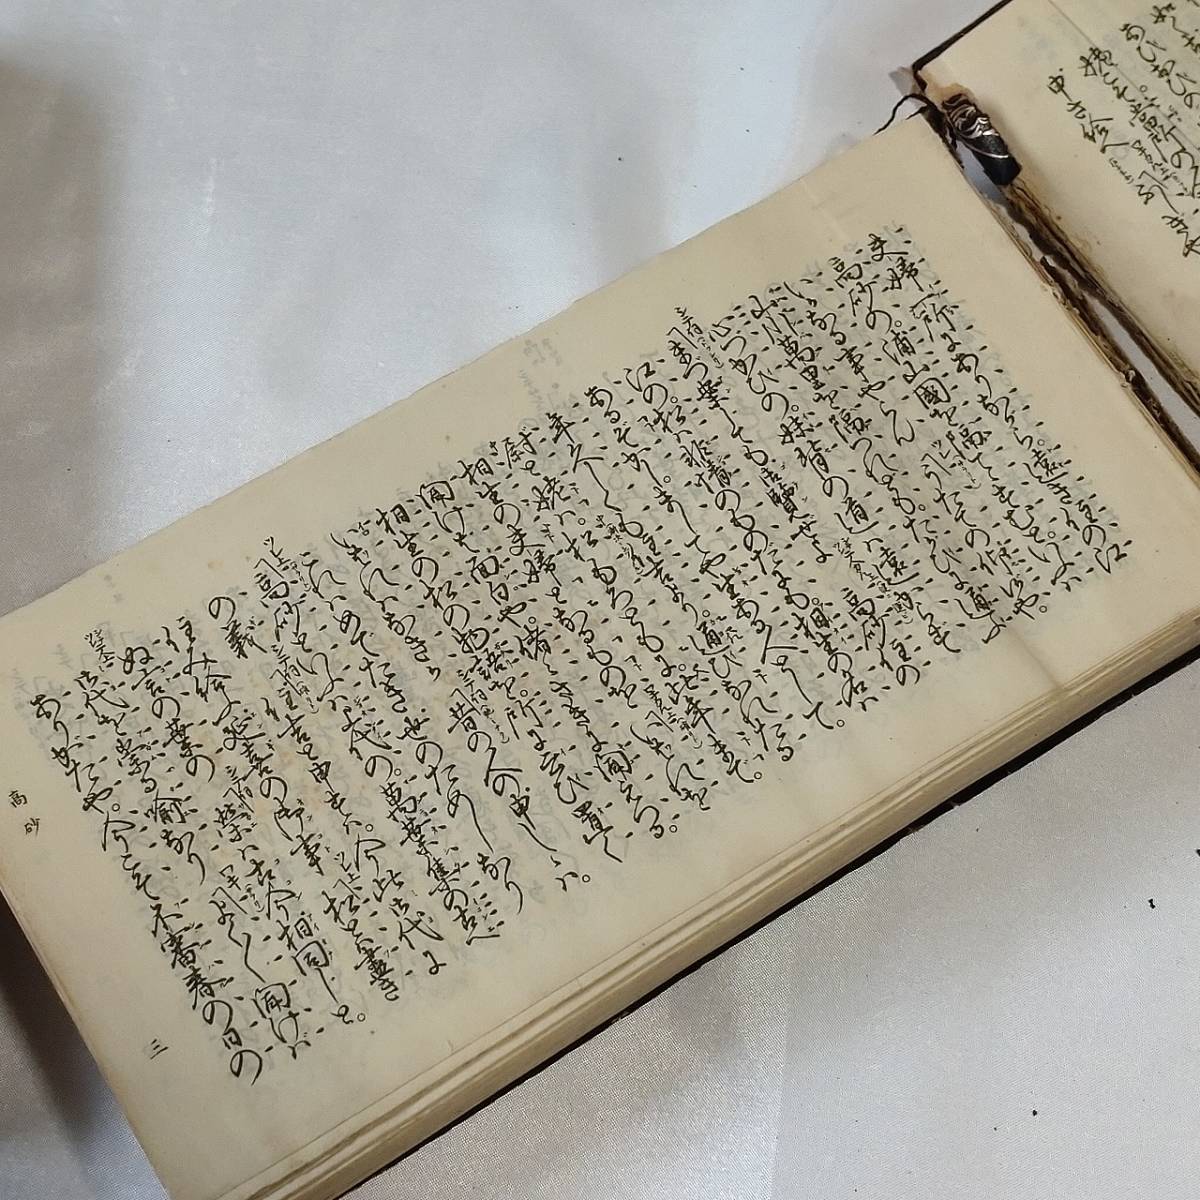 申さ給へ
夫婦一所にありながら。遠き住の江
高砂の。浦山國を隔てゝ住むと。いふハ
いかなる事やらん うたての仰候や。
山川萬里を隔つれども。たがひに通ふ
心づかひの。妹背の道ハ遠からず
まづ案じても御覽ぜよ 高砂住の
江の。松ハ非情のものだにも。相生の名ハ
あるぞかし。ましてや生ある人として。
年久しくも住吉より。通ひなれたる
尉と姥ハ。松もろともに。此年まで。
相生の夫婦となるものを いはれを
聞けば面白や。偖々さきに聞えつる。
相生の松の物語を。所に言ひ置く
いはれハなきか 昔の人の申しゝハ。
これハめでたき世のためしなり
高砂といふハ上代の。萬葉集の古へ
の義 住吉と申すハ。今此御代に
住み給ふ延喜の御事 松とハ盡き
ぬ言の葉の 榮ハ古今相同じと。
御代を崇る喩なり よく〳〵聞けバ
ありがたや。今こそ不審春の日の
高砂
三